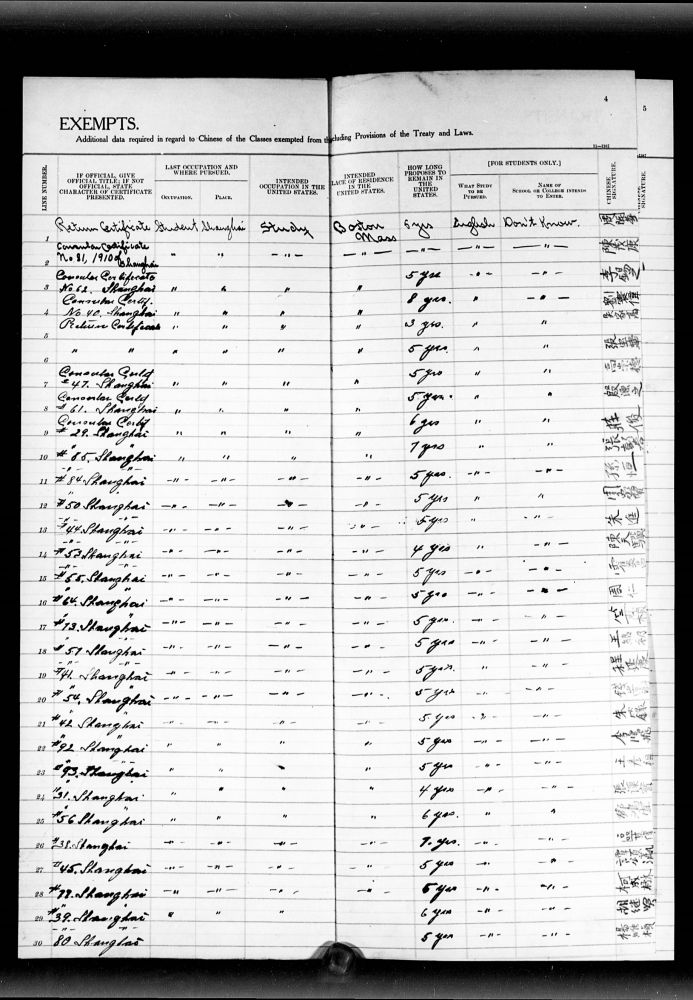 4
5
EXEMPTS.
Additional data required in regard to Chinese of the Classes exempted from the cluding Provisions of the Treaty and Laws.
LINE NUMBER.
IF OFFICIAL, GIVE OFFICIAL TITLE; IF NOT OFFICIAL, STATE CHARACTER OF CERTIFICATE PRESENTED.
LAST OCCUPATION AND WHERE PURSUED.
OCCUPATION.
PLACE.
INTENDED OCCUPATION IN THE UNITED STATES.
INTENDED LACE OF RESIDENCE IN THE UNITED STATES.
HOW LONG PROPOSES TO REMAIN IN THE UNITED STATES.
[FOR STUDENTS ONLY.]
WHAT STUDY TO BE PURSUED.
NAME OF SCHOOL OR COLLEGE INTENDS TO ENTER.
CHINESE SIGNATURE.
SIGNATURE.
1 Return Certificate Student Shanghai Study Boston Mass 5 yrs English Don't Know.
2 Consular Certificate No 81, 1910 of Shanghai " " — " — — " — — " — — " — — " —
3 Consular Certificate No 62. Shanghai " " " " 5 yrs - " - — " — 李
4 Consular Certif. No. 40. Shanghai " " " " 8 yrs. " — " — 劉
5 Return Certificate " " " " 3 yrs. " "
6 " " " " " " 5 yrs. " " 張
7 Consular Certif # 47. Shanghai " " " " 5 yrs " "
8 Consular Certif # 61. Shanghai " " " " 5 yrs. " " 殷
9 Consular Certif # 29. Shanghai " " " " 6 yrs " " 莊俊
10 " # 85. Shanghai " " " 7 yrs " " 張
11 # 84 Shanghai - " - - " - - " - - " - 5 yrs. - " - - " - 孫恒
12 # 50 Shanghai - " - - " - - " - - " - 5 yrs " " 周
13 # 44 Shanghai - " - - " - - " - - " - 5 yrs " - " - 朱進
14 # 53 Shanghai - " - - " - - " - - " - 4 yrs " - " - 陳
15 # 55. Shanghai - " - - " - - " - - " - 5 yrs - " - - " -
16 # 64. Shanghai - " - - " - - " - - " - 5 yrs - " - - " - 周仁
17 # 73. Shanghai - " - - " - - " - - " - 5 yrs. - " - - " - 竺
18 # 57 Shanghai - " - - " - - " - - " - 5 yrs - " - - " - 王
19 # 41. Shanghai - " - - " - - " - - " - 5 yrs. " - " - 程
20 # 54. Shanghai - " - - " - - " - - " - 5 yrs " - " -
21 # 42 Shanghai - " - - " - - " - - " - 5 yrs - " - - " - 朱
22 # 92 Shanghai " " " " 5 yrs - " - - " - 李
23 # 93. Shanghai " " " " 5 yrs - " - - " - 王
24 # 31. Shanghai " " " " 4 yrs - " - " 張
25 # 56 Shanghai " " " " 6 yrs. " "
26 # 38. Shanghai - " - - " - - " - - " - 7. yrs. - " - - " -
27 # 45. Shanghai - " - - " - - " - - " - 5 yrs - " - - " - 譚
28 Shanghai - " - - " - - " - - " - 5 yrs - " - - " - 柯成楙
29 # 39. Shanghai " " " 6 yrs - " - - " - 胡继賢
30 80. Shanghai 5 yrs - " - - " - 楊維楨